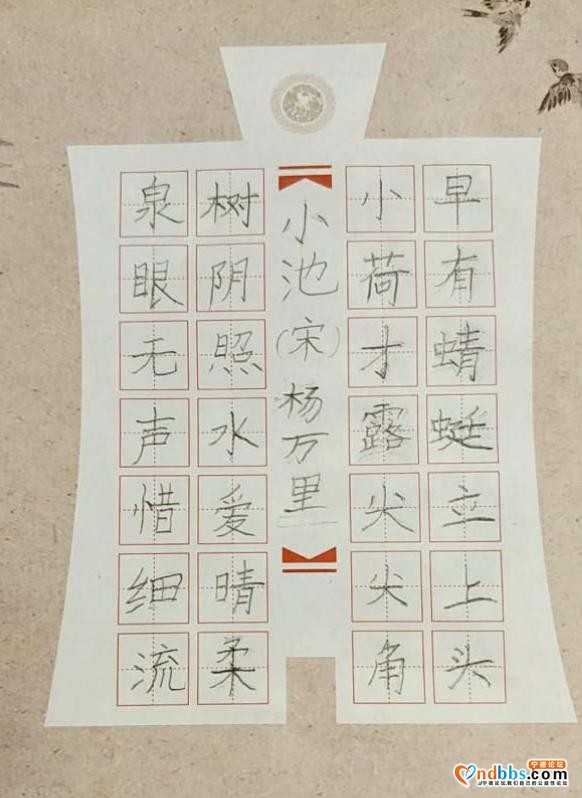 小池
（宋）杨万里
泉眼无声惜细流
树阴照水爱晴柔
小荷才露尖尖角
早有蜻蜓立上头
宁德论坛
ndbbs.com